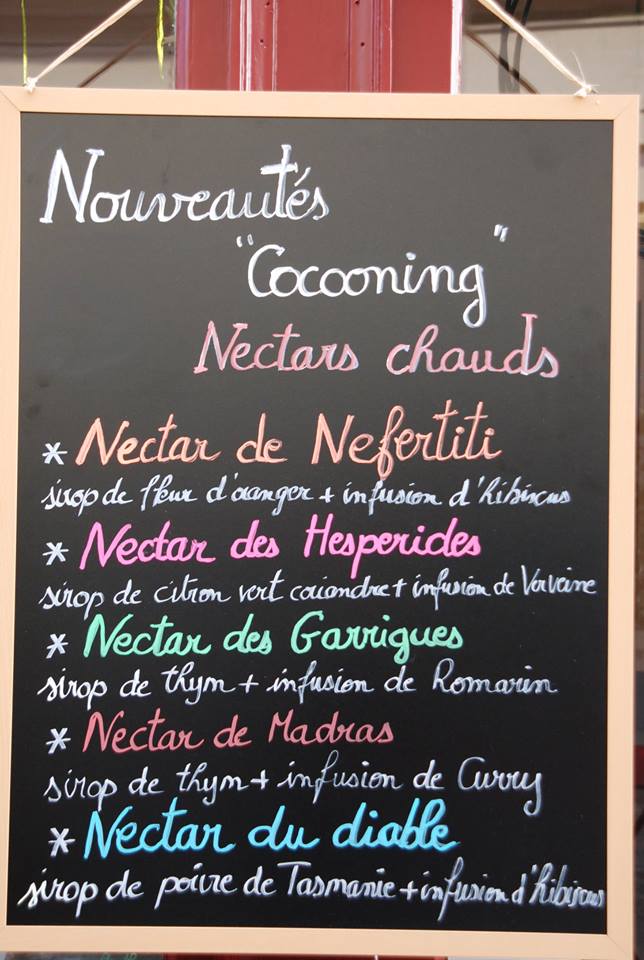 Nouveautés
"Cocooning"
Nectars chauds
* Nectar de Nefertiti
sirop de fleur d'oranger + infusion d'hibiscus
* Nectar des Hesperides
sirop de citron vert coriandre + infusion de Verveine
* Nectar des Garrigues
sirop de thym + infusion de Romarin
* Nectar de Madras
sirop de thym + infusion de Curry
* Nectar du diable
sirop de poivre de Tasmanie + infusion d'hibiscus